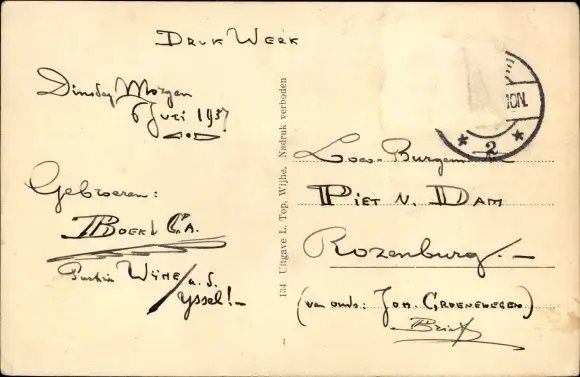 DRUK WERK
Dinsdag Morgen
6 Juli 1937
Gebroeren:
BOER & CA.
WIJHE a.d.
Yssel!-
134 Uitgave L. Top, Wijhe. Nadruk verboden
2
Loco-Burgem
PIET N. DAM
Rozenburg.-
(van onds: JOH. GROENEWEGEN)
Brief